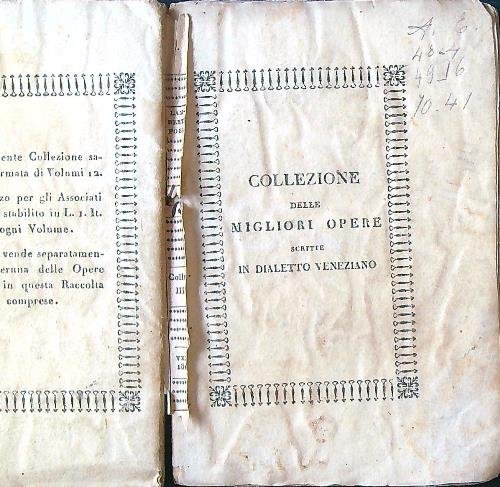 ente Collezione sa-
rmata di Volumi 12.
zo per gli Associati
stabilito in L. 1. It.
ogni Volume.
vende separatamen-
eruna delle Opere
in questa Raccolta
comprese.
LAM-
POE
Colle
III
VE
COLLEZIONE
DELLE
MIGLIORI OPERE
SCRITTE
IN DIALETTO VENEZIANO
A. E.
10.41